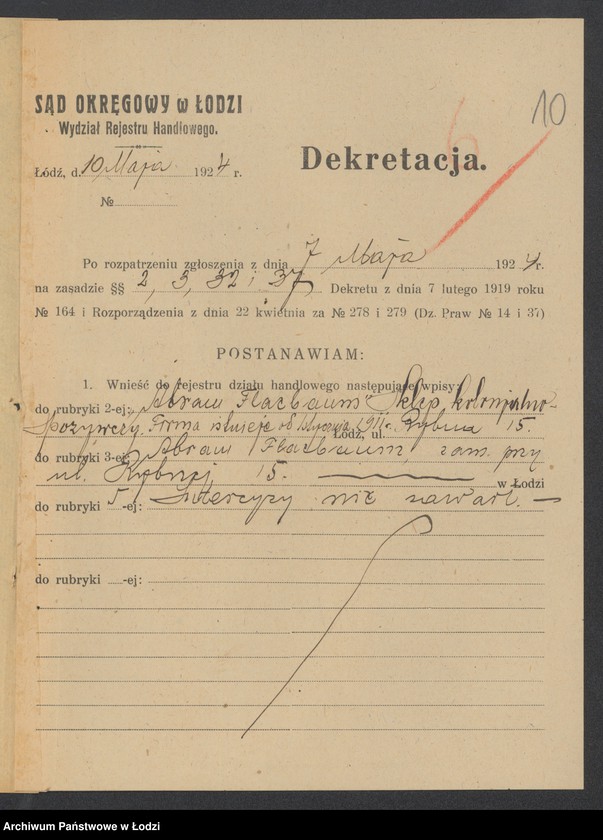 SĄD OKRĘGOWY w ŁODZI
Wydział Rejestru Handlowego.
Łódź, d. 10 Maja 1924 r.
№
10
6
Dekretacja.
Po rozpatrzeniu zgłoszenia z dnia 7 Maja 1924 r.
na zasadzie §§ 2, 3, 32 i 37 Dekretu z dnia 7 lutego 1919 roku
№ 164 i Rozporządzenia z dnia 22 kwietnia za № 278 i 279 (Dz. Praw № 14 i 37)
POSTANAWIAM:
1. Wnieść do rejestru działu handlowego następujące wpisy:
do rubryki 2-ej: „Abram Flacbaum" Sklep kolonjalno-
spożywczy. Firma istnieje od 1 stycznia 1911 r. Łódź, ul. Rybna 15.
do rubryki 3-ej: Abram Flacbaum, zam. przy
ul. Rybnej 15. w Łodzi
do rubryki 5-ej: Intercyzy nie zawarł. —
do rubryki -ej:
Archiwum Państwowe w Łodzi